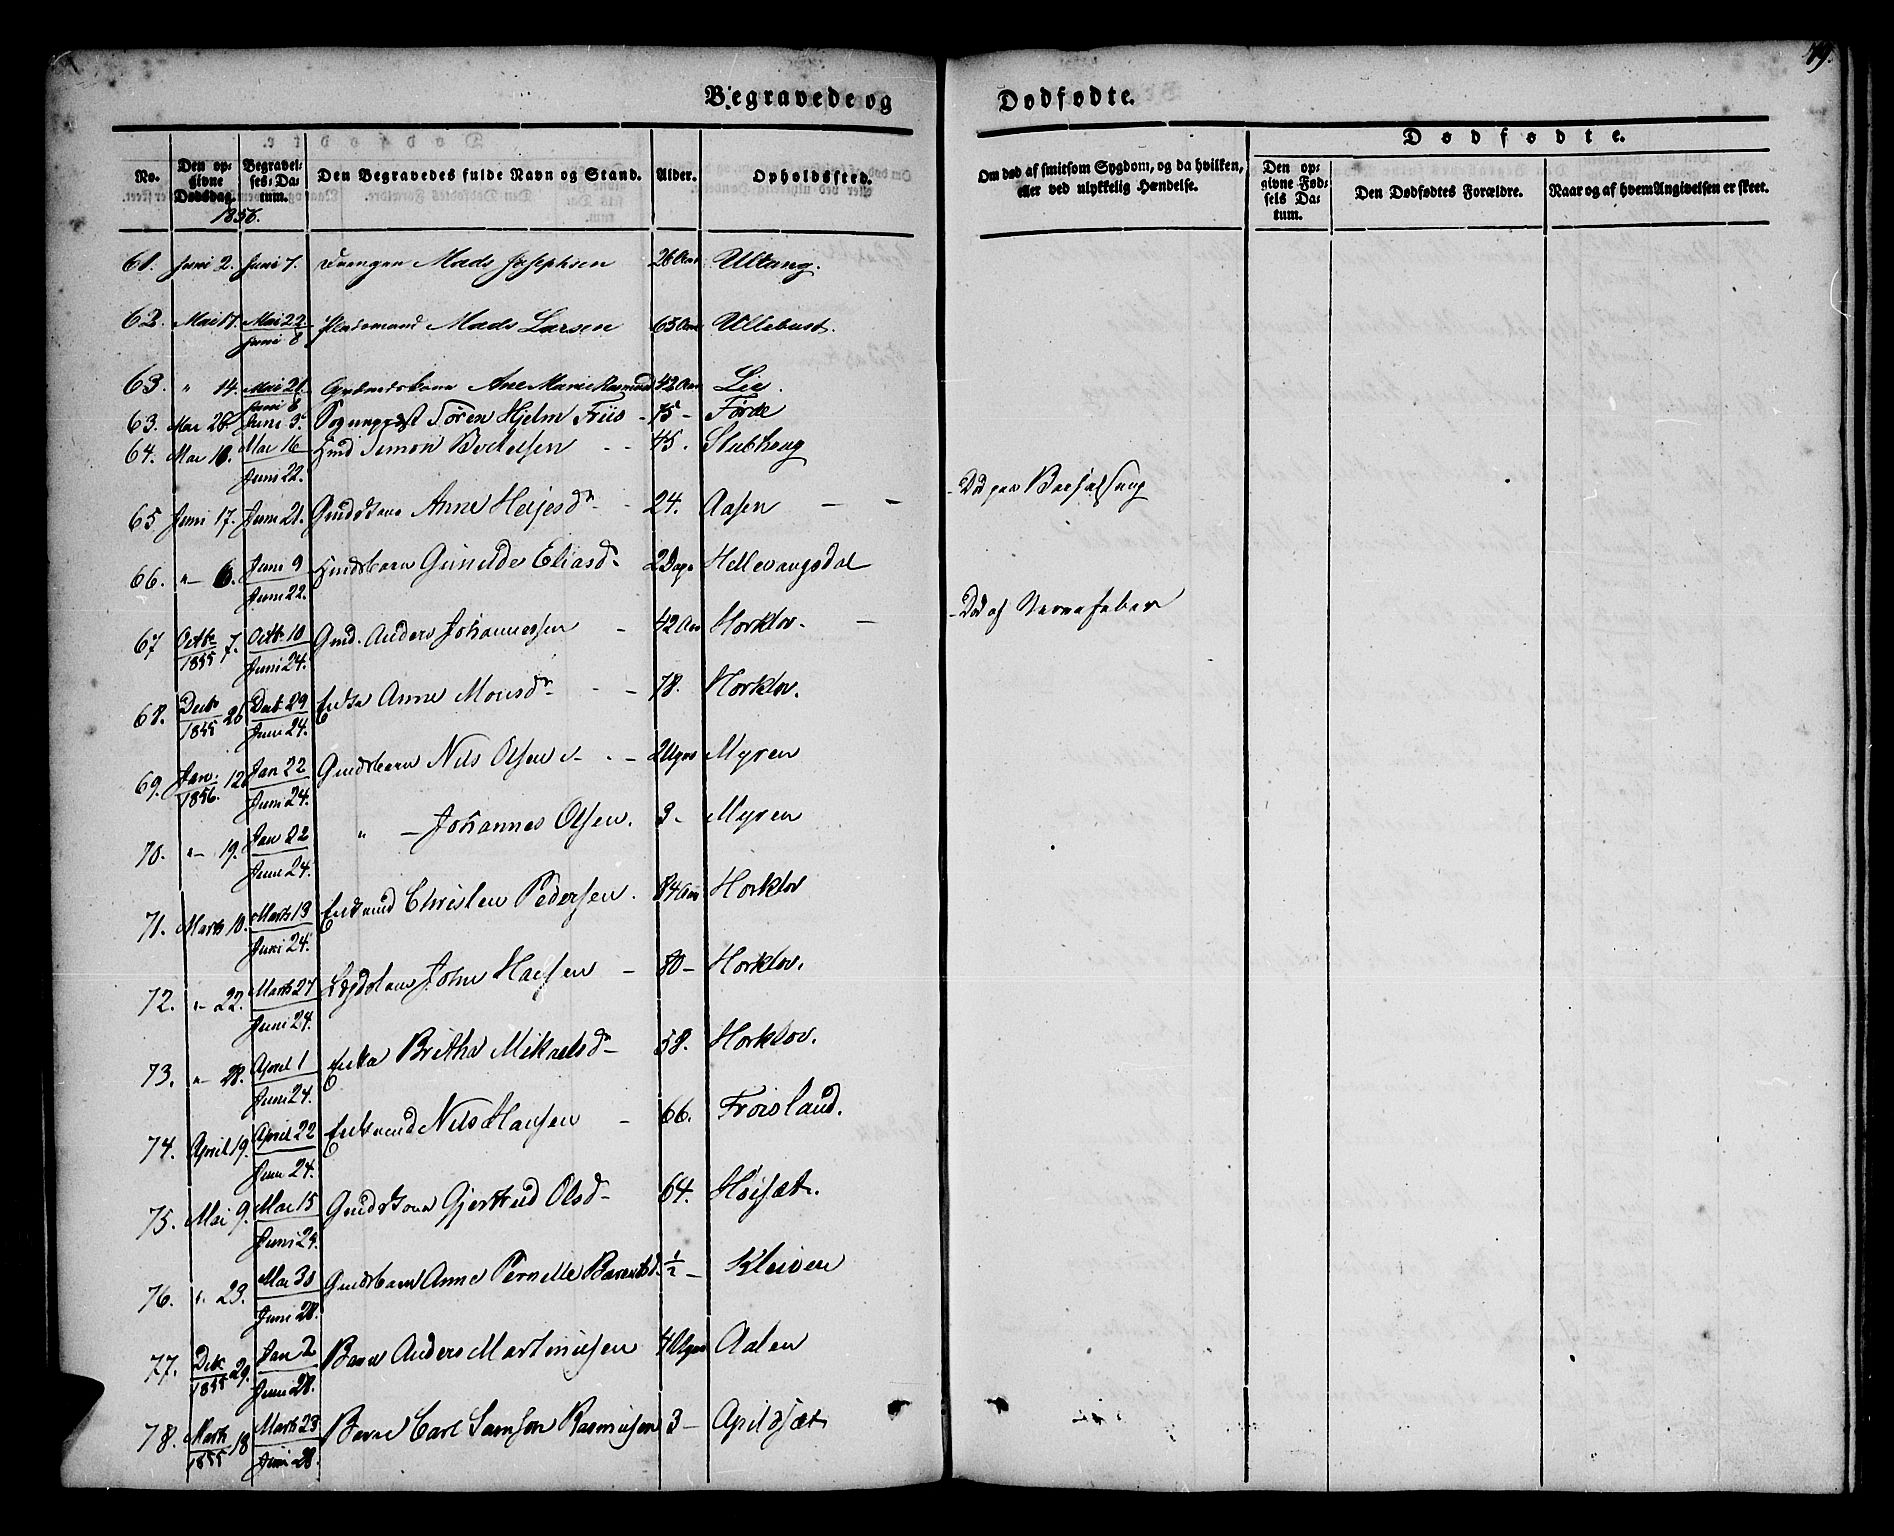 79.
Begravede og Dødfødte.
Dødfødte.
No. Den opgivne Dødsdag. Begravelses-Datum. Den Begravedes fulde Navn og Stand. Alder. Opholdssted. Om død af smitsom Sygdom, og da hvilken, eller ved ulykkelig Hændelse. Den opgivne Fødsels Datum. Den Dødfødtes Forældre. Naar og af hvem Angivelsen er skeet.
1856.
61. Juni 2. Juni 7. Drengen Mads Josephsen 26 Aar Ullang.
62. Mai 17. Mai 22 Juni 8 Pladsmand Mads Larsen 65 Aar Ullebust.
63. " 14. Mai 21. Juni 8 Gaardmandskone Ane Marie Rasmusd 42 Aar Lie.
63. Mai 28 Juni 3. Sognepræst Søren Hjelm Friis - 75 - Førde
64. Mai 10. Mai 16 Juni 22. Hmd Simon Bertelsen - - 45. Stubhaug
65 Juni 17. Juni 21. Gmdskone Anne Heljesdr - 24. Aasen - - - Død paa Barselseng
66. " - 6. Juni 9 Juni 22. Hmdsbarn Gunilde Eliasd - 2 Dage Hellevangsdal
67 Octbr 1855 7. Octb. 10 Juni 24. Gmd. Anders Johannessen - 42 Aar Horklov. - - Død af Nervefeber
68. Decbr 1855 26 Decb 29 Juni 24. Enke Anne Monsdr - - 78. Horklov.
69. Jan. 1856. 12 Jan 22 Juni 24. Gmdsbarn Nils Olsen - . - 2 Uger Myren
70. " - 19. Jan 22 Juni 24. " - Johannes Olsen. 3 - Myren
71. Marts 10. Marts 13 Juni 24. Enkemd Christen Pedersen. 84 Aar Horklov
72. " - 22. Marts 27 Juni 24. Lægdslem John Hansen - 80 - Horklov.
73. " - 28. April 1 Juni 24. Enke Britha Mikaelsd - 58. Horklov.
74. April 19. April 22 Juni 24. Enkemd Nils Hansen - 66. Frøisland.
75. Mai 9. Mai 15 Juni 24. Gmdskone Gjertrud Olsd - 64. Høisæt.
76. " 23. Mai 30 Juni 28. Gmdsbarn Anne Pernille Berentsd. ½ - Kleiven
77. Dec 1855 29. Jan 2 Juni 28. Barn Anders Martinusen 4 Uger Aalen
78. Marts 1855 18 Marts 23 Juni 28. Barn Carl Samson Rasmusen 3 - Apildsæt